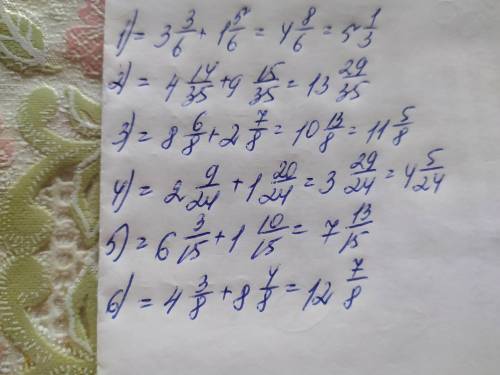 1) = 3 3/6 + 1 5/6 = 4 8/6 = 5 1/3
2) = 4 14/35 + 9 15/35 = 13 29/35
3) = 8 6/8 + 2 7/8 = 10 13/8 = 11 5/8
4) = 2 9/24 + 1 20/24 = 3 29/24 = 4 5/24
5) = 6 3/15 + 1 10/15 = 7 13/15
6) = 4 3/8 + 8 4/8 = 12 7/8